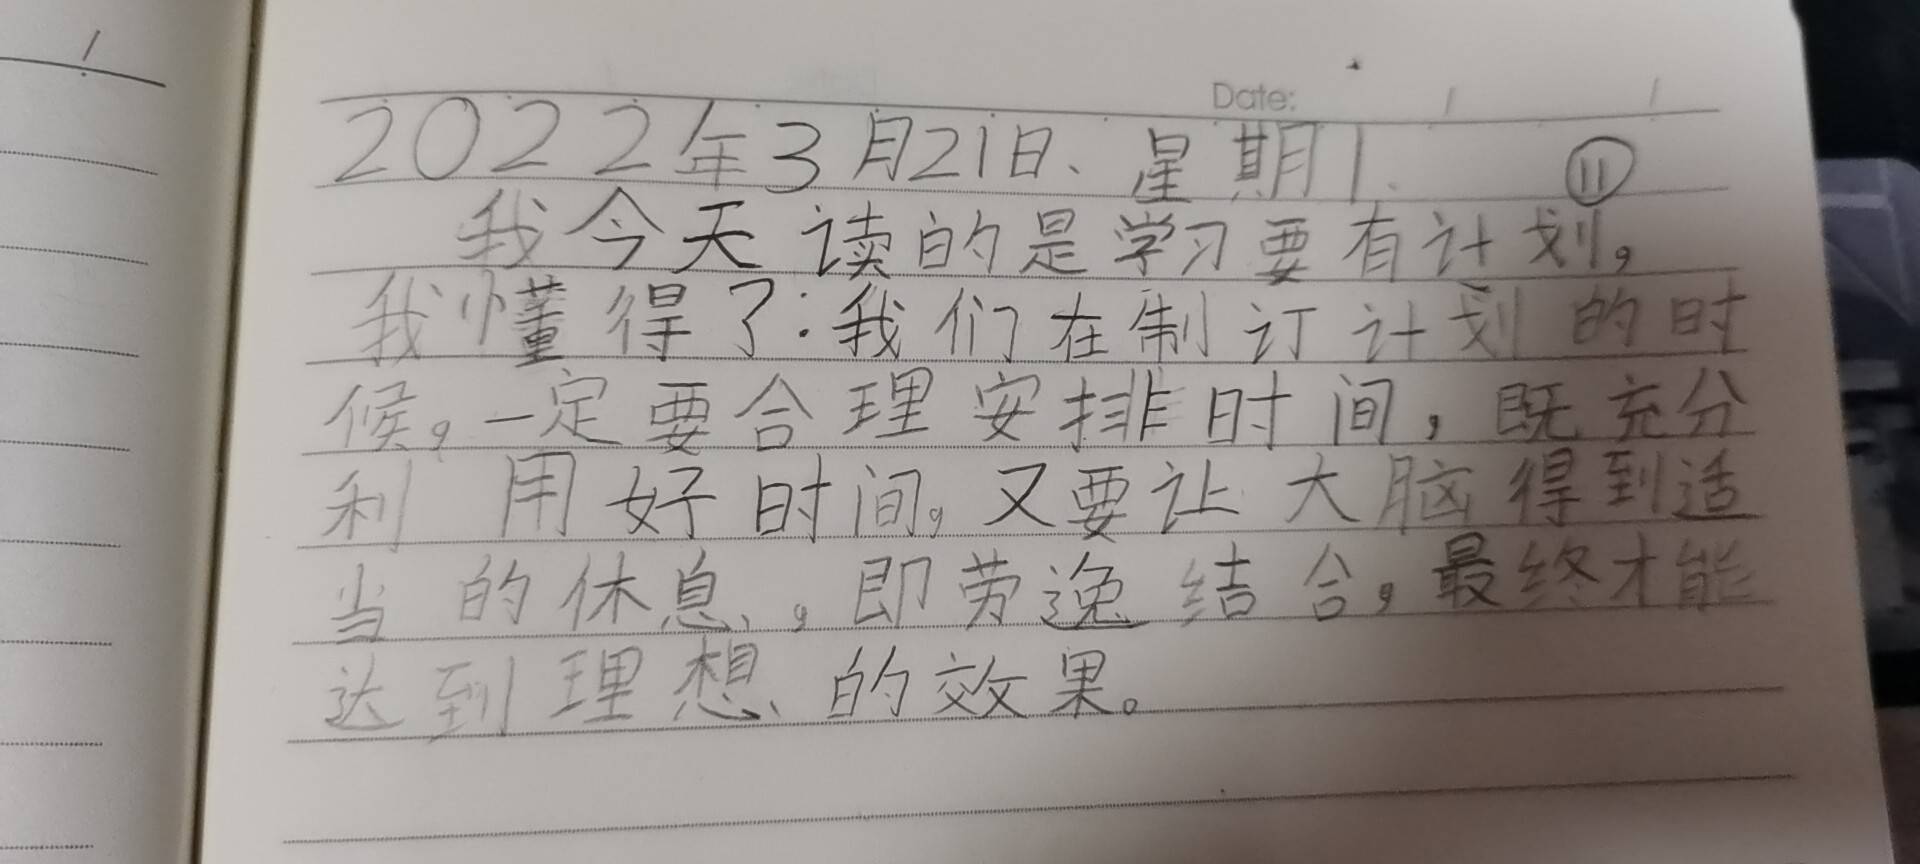 Date:
2022年3月21日、星期1. ⑪
我今天读的是学习要有计划,
我懂得了:我们在制订计划的时
候,一定要合理安排时间,既充分
利用好时间,又要让大脑得到适
当的休息,即劳逸结合,最终才能
达到理想的效果。